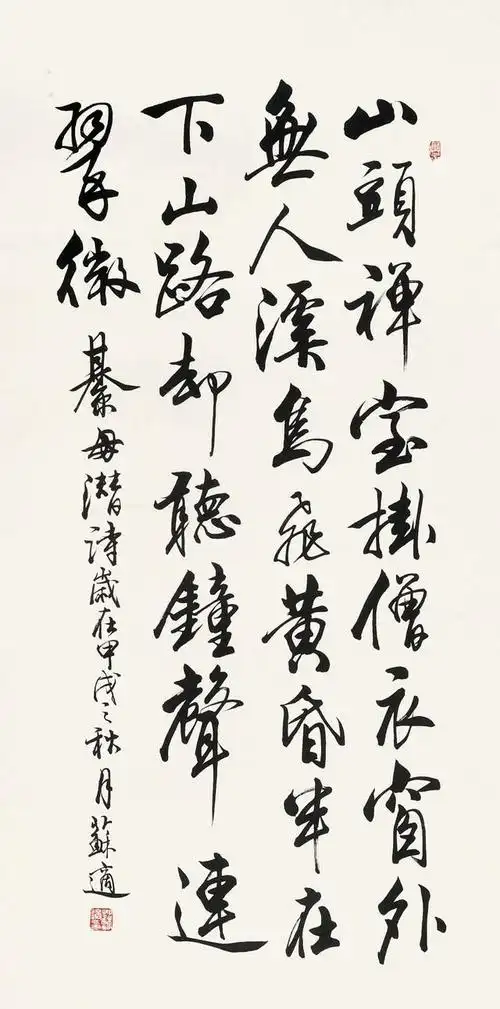 山頭禅室掛僧衣窗外
無人溪鳥飛黄昏半在
下山路却聽鐘聲連
翠微 綦母潛詩歲在甲戌之秋月蘇適